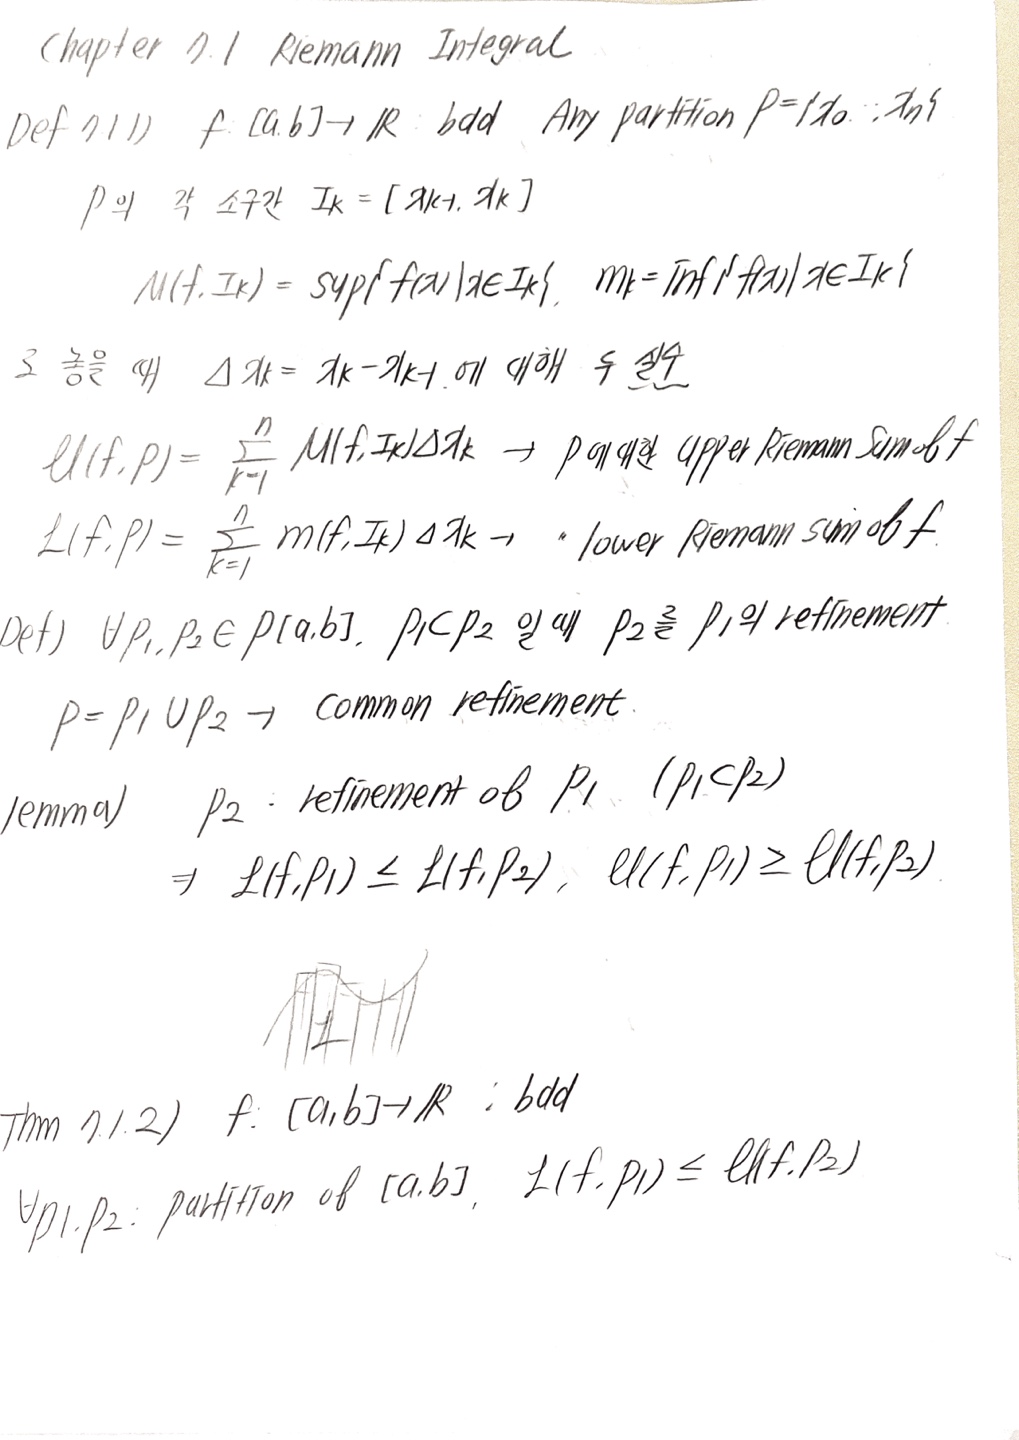 Chapter 7.1 Riemann Integral
Def 7.1.1) f: [a,b]→ℝ : bdd Any partition P={x₀…,xₙ}
P의 각 소구간 Iₖ = [xₖ₋₁, xₖ]
M(f, Iₖ) = sup{f(x)|x∈Iₖ}, mₖ = inf{f(x)|x∈Iₖ}
로 놓을 때 Δxₖ = xₖ-xₖ₋₁ 에 대해 두 실수
U(f,P) = Σₖ₌₁ⁿ M(f,Iₖ)Δxₖ → P에 대한 upper Riemann Sum of f
L(f,P) = Σₖ₌₁ⁿ m(f,Iₖ)Δxₖ → 〃 lower Riemann sum of f.
Def) ∀P₁,P₂∈P[a,b], P₁⊂P₂ 일 때 P₂를 P₁의 refinement
P=P₁∪P₂ → common refinement.
lemma) P₂ : refinement of P₁ (P₁⊂P₂)
⇒ L(f,P₁) ≤ L(f,P₂), U(f,P₁) ≥ U(f,P₂).
L
Thm 7.1.2) f: [a,b]→ℝ : bdd
∀P₁,P₂: partition of [a,b], L(f,P₁) ≤ U(f,P₂)